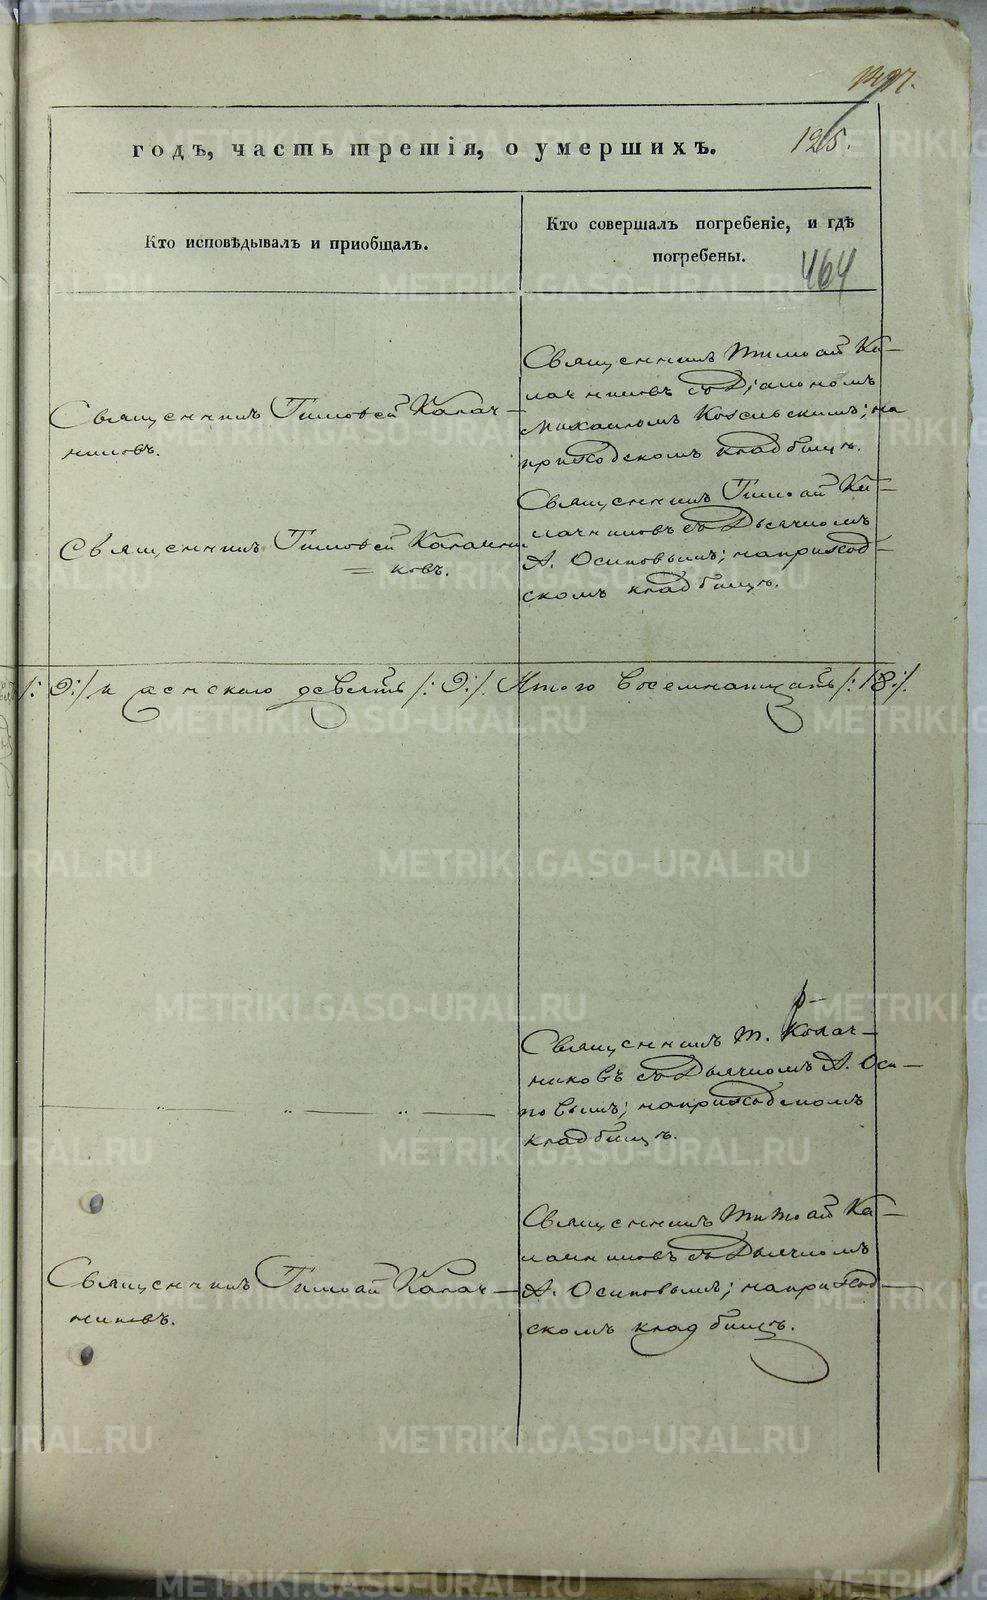 годъ, часть третія, о умершихъ.
125.
Кто исповѣдывалъ и пріобщалъ.
Кто совершалъ погребеніе, и гдѣ
погребены.
464
Священникъ Тимофей Калач-
никовъ.
Священникъ Тимофей Ка-
лачниковъ съ Діакономъ
Михаиломъ; на
приходскомъ кладбищѣ.
Священникъ Тимофей Калачни
= ковъ.
Священникъ Тимофей Ка-
лачниковъ съ Дьячкомъ
А. Осиповымъ; на приход-
скомъ кладбищѣ.
/: 9:/ и женскаго девять /: 9:/. Итого восемнатцать /: 18:/.
Священникъ Т. Калач-
никовъ съ Дьячкомъ А. Оси-
повымъ; на приходскомъ
кладбищѣ.
Священникъ Тимофей Калач-
никовъ.
Священникъ Тимофей Ка-
лачниковъ съ Дьячкомъ
А. Осиповымъ; на приход-
скомъ кладбищѣ.
METRIKI.GASO-URAL.RU